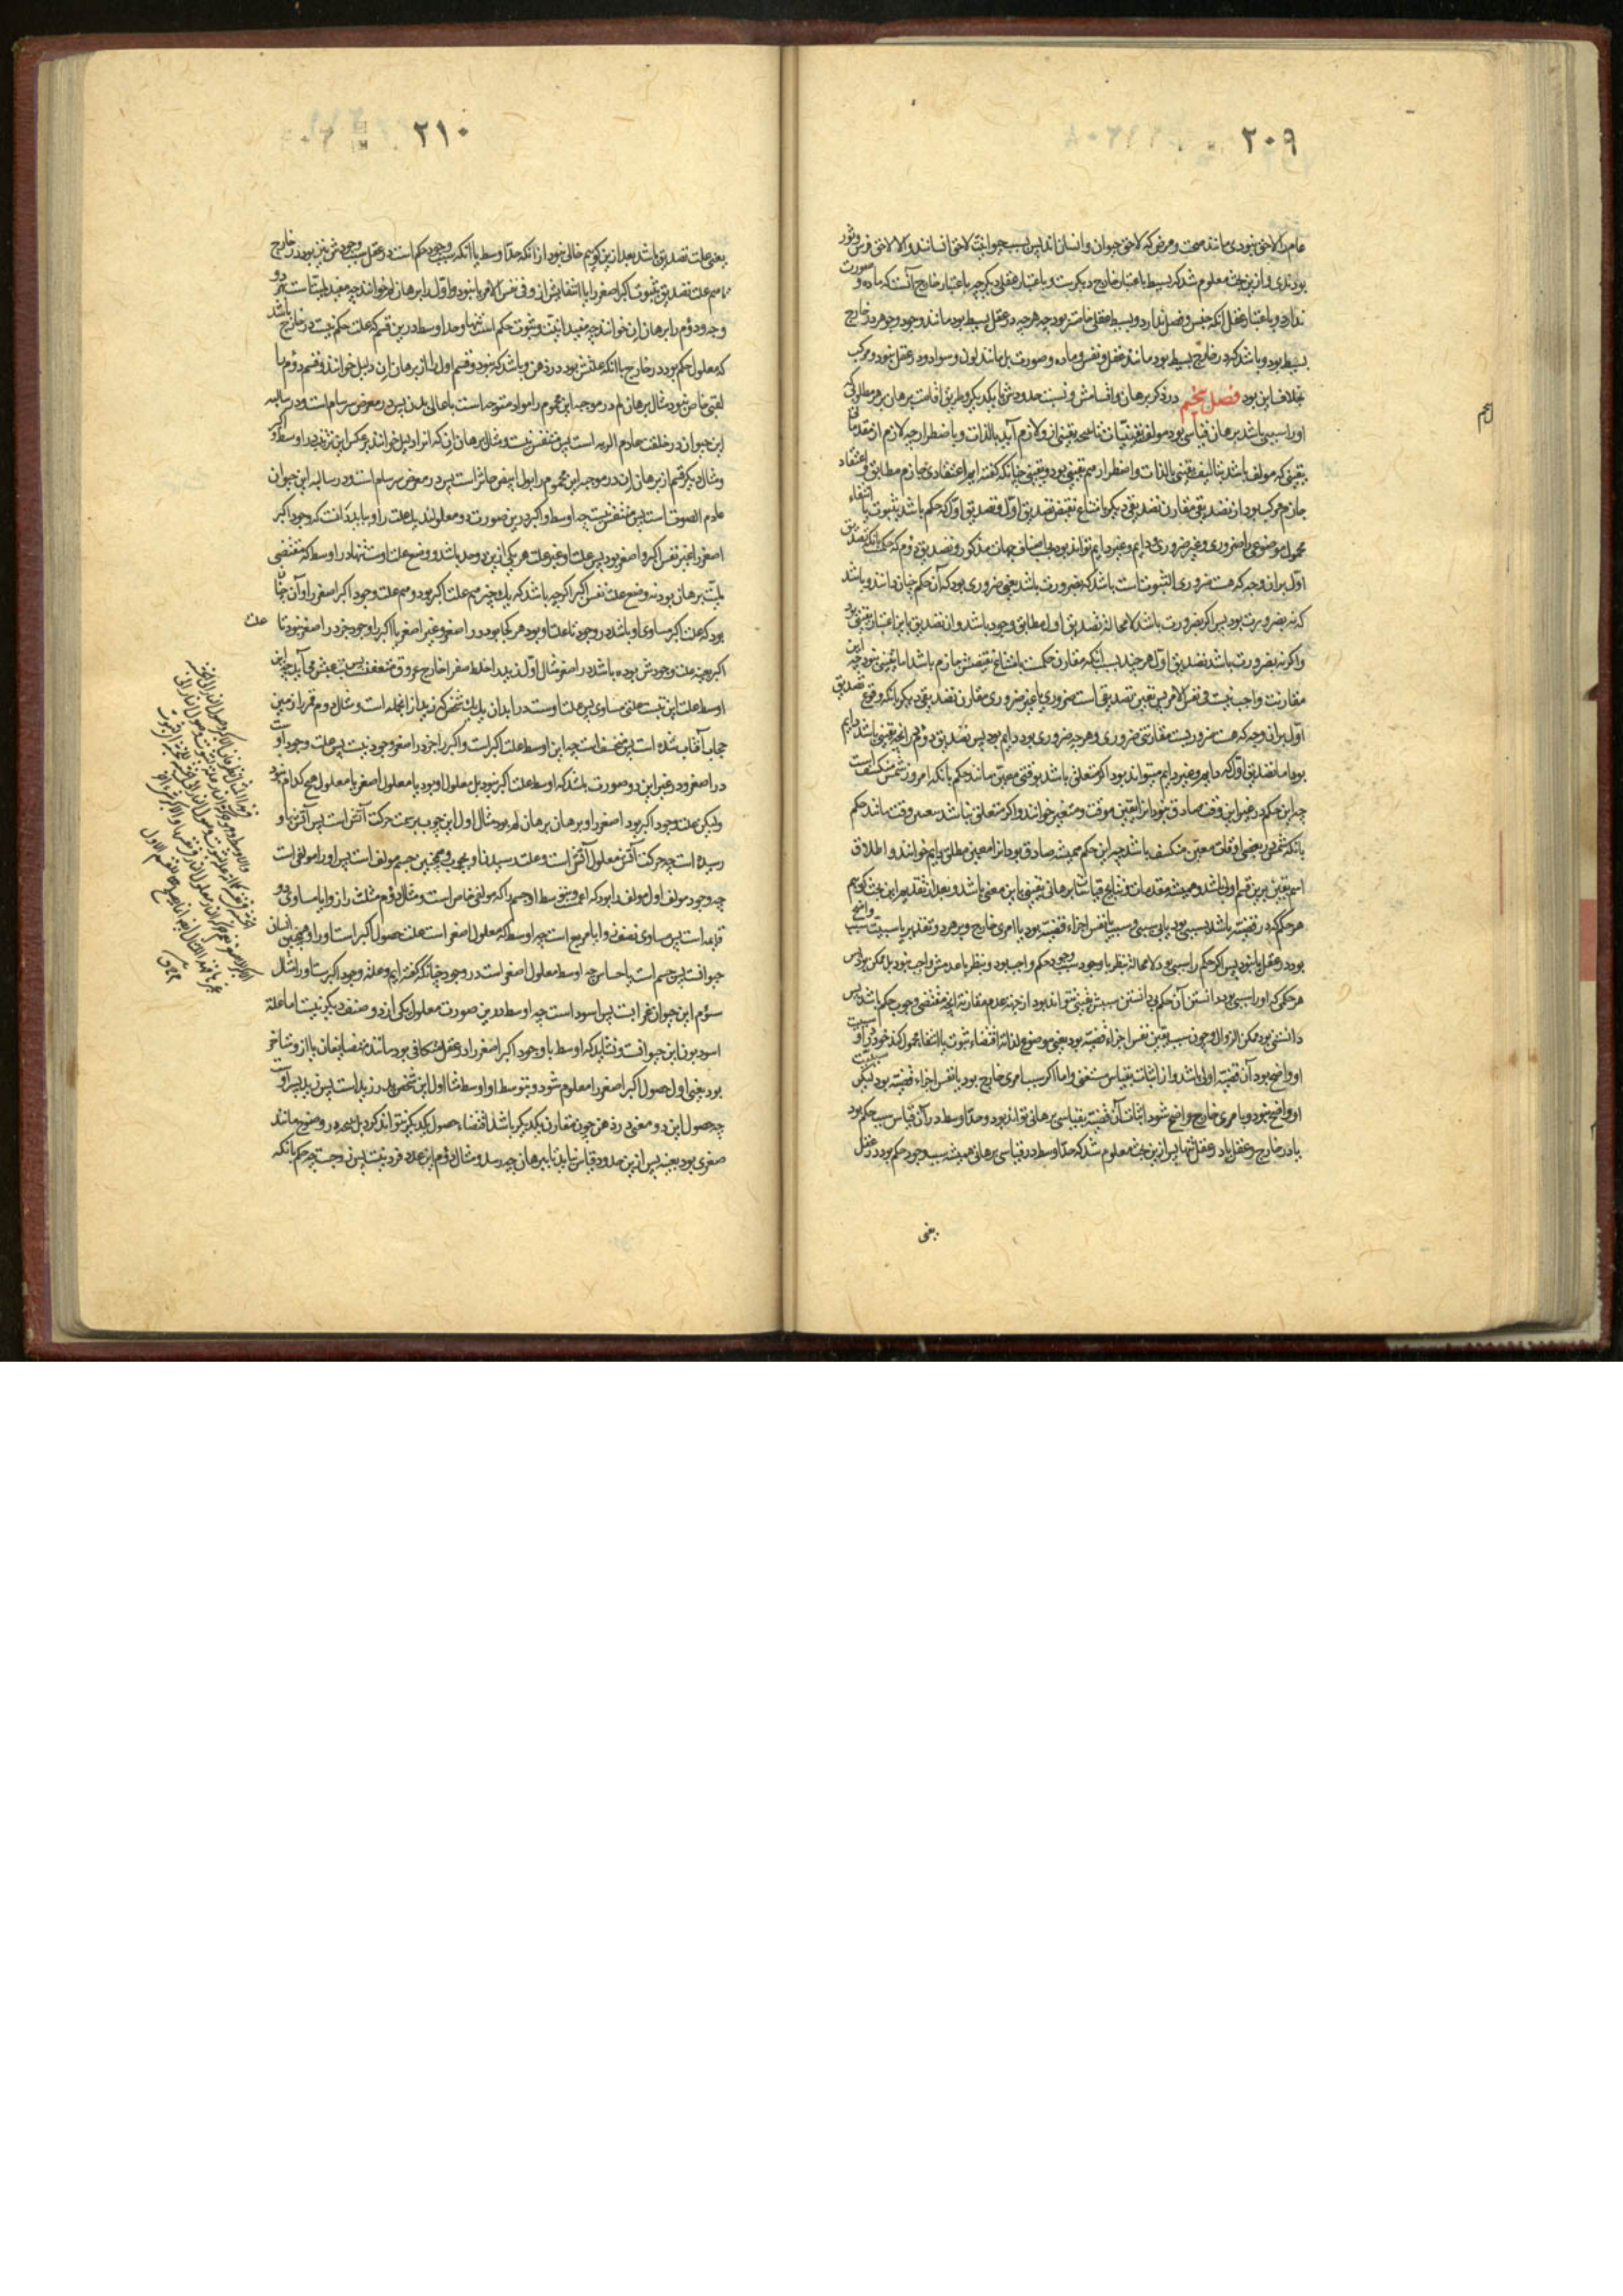 ٢٠٩
عام را لاحق نبودی مانند صحت و مرض که لاحق حیوان و انسان اند پس بسبب حیوانیت لاحق انسانند و الا لاحق فرس و ثور
بودندی و ازین بحث معلوم شد که بسیط باعتبار خارج دیگرست و باعتبار عقل دیگر چه باعتبار خارج آنست که ماده و صورت
ندارد و باعتبار عقل آنکه جنس و فصل ندارد و بسیط عقلی خاصتر بود چه هرچه در عقل بسیط بود مانند وجود و جوهر در خارج
بسیط بود و باشد که در خارج بسیط بود مانند عقل و نفس و ماده و صورت بل مانند لون و سواد و در عقل نبود و مرکب
بخلاف این بود فصل پنجم در ذکر برهان و اقسامش و نسبت حدودش با یکدیگر و طریق اقامت برهان بر هر مطلوبی که
او را سببی باشد برهان قیاسی بود مولف از یقینیات تا نتیجه یقینی ازو لازم آید بالذات و باضطرار چه لازم از مقدمات
یقینی که مولف باشد بتالیف یقینی بالذات و اضطرار هم یقینی بود و یقینی چنانکه گفته ایم اعتقادی جازم مطابق و اعتقاد
جازم مرکب بود از تصدیقی مقارن تصدیقی دیگر بامتناع نقیض تصدیق اول و تصدیق اول که حکم باشد بثبوت یا انتفاء
محمول موضوعی را ضروری و غیر ضروری و دایم و غیر دایم تواند بود بحسب اصناف جهات مذکور و تصدیق دوم که حکمست بآنکه تصدیق
اول بران وجه که هست ضروری الثبوت است باشد که بضرورت باشد یعنی ضروری بود که آن حکم چنان دانند و باشد
که نه بضرورت بود پس اگر بضرورت باشد لامحاله تصدیق اول مطابق وجود باشد و آن تصدیق باین اعتبار یقینی بود
و اگر نه بضرورت باشد تصدیق اول هر چند بسبب آنکه مقارن حکمست بامتناع نقیضش جازم باشد اما یقینی نبود چه این
مقارنت واجب نیست فی نفس الامر پس یقین تصدیقی است ضروری یا غیر ضروری مقارن تصدیقی دیگر بآنکه وقوع تصدیق
اول بران وجه که هست ضروریست مقارنتی ضروری و هرچه ضروری بود دایم بود پس تصدیق دوم در آنچه یقینی باشد دایم
بود اما تصدیق اول که دایم و غیر دایم میتواند بود اگر متعلق باشد بوقتی معین مانند حکم بآنکه امروز شمس منکسف است
چه این حکم در غیر این وقت صادق نبود آنرا یقین موقت و متغیر خوانند و اگر متعلق نباشد بمعین وقت مانند حکم
بانکه شمس در بعضی اوقات معین منکسف باشد چه این حکم همیشه صادق بود آنرا معین مطلق دایم خوانند و اطلاق
اسم یقین برین قسم اولی باشد و همیشه مقدمات و نتایج قیاسات برهانی یقینی باین معنی باشد و بعد از تقدیم این بحث گویم
هر حکم که در قضیه باشد بسببی بود یا بی سببی و سبب یا نفس اجزاء قضیه بود یا امری خارج و بر هر دو تقدیر یا سببیت سبب واضح
بود در عقل یا نبود پس اگر حکم را سببی بود لامحاله بنظر با وجود سبب وجود حکم واجب بود و بنظر با عدمش واجب نبود بل ممکن بود پس
هر حکمی که او را سببی بود دانستن آن حکم بی دانستن سببش یقینی نتواند بود از جهت عدم مقارنه آنچه مقتضی وجوب حکم باشد پس
دانستنی بود ممکن الزوال و چون سبب یقین نفس اجزاء قضیه بود یعنی موضوع لذاته اقتضاء ثبوت یا انتفاء محمول کند خود را و سببیت
او واضح بود آن قضیه اولی باشد و از اثبات بقیاس مستغنی و اما اگر سبب امری خارج بود یا نفس اجزاء قضیه بود لیکن سببیت
او واضح نبود و یا مری خارج واضح شود اثبات آن قضیه بقیاسی برهانی تواند بود و حد اوسط در آن قیاس سبب حکم بود
یا در خارج و عقل یا در عقل تنها پس ازین بحث معلوم شد که حد اوسط در قیاسی برهانی همیشه سبب وجود حکم بود در عقل
یعنی
٢١٠
یعنی علت تصدیق باشد بعد ازین گویم خالی نبود از انکه حد اوسط با آنکه سبب وجود حکم است در عقل سبب وجودش نیز بود در خارج
یا هم علت تصدیق بثبوت اکبر اصغر را یا انتفایش ازو فی نفس الامر یا نبود و اول را برهان لم خوانند چه مفید لمیت است در
وجود و دوم را برهان ان خوانند چه مفید انیت و ثبوت حکم است تنها و حد اوسط درین قسم که علت حکم نیست در خارج باشد
که معلول حکم بود در خارج با آنکه علتش بود در ذهن و باشد که نبود و قسم اول را از برهان ان دلیل خوانند و قسم دوم با
لقبی خاص نبود مثال برهان لم در موجبه این محموم را مواد متوجه است باعالی بدن پس در معرض سرسام است و در سالبه
این حیوان در خلقت عادم الریه است پس متنفس نیست و مثال برهان ان که آنرا دلیل خوانند بر عکس این ترتیب در اوسط و اکبر
و مثال دیگر قسم از برهان ان در موجبه این محموم را بول ابیض خاثر است پس در معرض سرسام است و در سالبه این حیوان
عادم الصوت است پس متنفس نیست چه اوسط و اکبر درین صورت دو معلولند یک علت را و بباید دانست که وجود اکبر
اصغر را غیر نفس اکبر و اصغر بود پس علت او غیر علت هر یکی ازین دو حد باشد و وضع علت اوست تنها در اوسط که مقتضی
لمیت برهان بود نه وضع علت نفس اکبر اگرچه باشد که یک چیز هم علت اکبر بود و هم علت وجود اکبر اصغر را و آن چنان
بود که علت اکبر مساوی او باشد در وجود تا علت او بود هر کجا بود در اصغر و غیر اصغر یا اکبر را وجود جز در اصغر نبود تا علت
اکبر بعینه علت وجودش بوده باشد در اصغر مثال اول زید را خلط صفرا خارج عروق متعفنست پس تبش غب می آید چه این
اوسط علت این تبست علتی مساوی پس علت اوست در ابدان یک یک شخص که زید از آنجمله است و مثال دوم قمر را زمین
حجاب آفتاب شده است پس منخسف است چه این اوسط علت اکبر است و اکبر را جز در اصغر وجود نیست پس علت وجود اوست
در اصغر و در غیر این دو صورت باشد که اوسط علت اکبر نبود بل معلول او بود یا معلول اصغر یا معلول هیچ کدام نبود
ولیکن علت وجود اکبر بود اصغر را و برهان برهان لم بود مثال اول این چوب بر سمت حرکت آتش است پس آتش باو
رسیده است چه حرکت آتش معلول آتش است و علت رسیدن او بچوب و همچنین جسم مولف است پس او را مولفی است
چه وجود مولف اول مولف را بود که اعمست و بتوسط او جسم را که مولفی خاص است و مثال دوم مثلث را زوایا مساوی دو
قایمه است پس مساوی نصف زوایا مربع است چه اوسط که معلول اصغر است علت حصول اکبر است او را و همچنین انسان
حیوانست پس جسم است یا حساس چه اوسط معلول اصغر است در وجود چنانکه گفته ایم و علت وجود اکبرست او را مثال
سوم این حیوان غرابست پس اسود است چه اوسط درین صورت معلول یکی ازین دو صنف دیگر نیست اما علت
اسود بودن این حیوانست و نشاید که اوسط با وجود اکبر اصغر را در عقل متکافی بود مانند متضایفان یا ازو متاخر
بود یعنی اول حصول اکبر اصغر را معلوم شود و بتوسط او اوسط مثال اول این شخص پدر زید است پس زید پسر اوست
چه حصول این دو معنی در ذهن چون مقارن یکدیگر باشد اقتضاء حصول یکدیگر نتواند کرد بل نتیجه در وضوح مانند
صغری بود بعینه پس ازین حدود قیاس نیاید تا ببرهان چه رسد و مثال دوم این عدد فرد نیست پس زوجست چه حکم بانکه